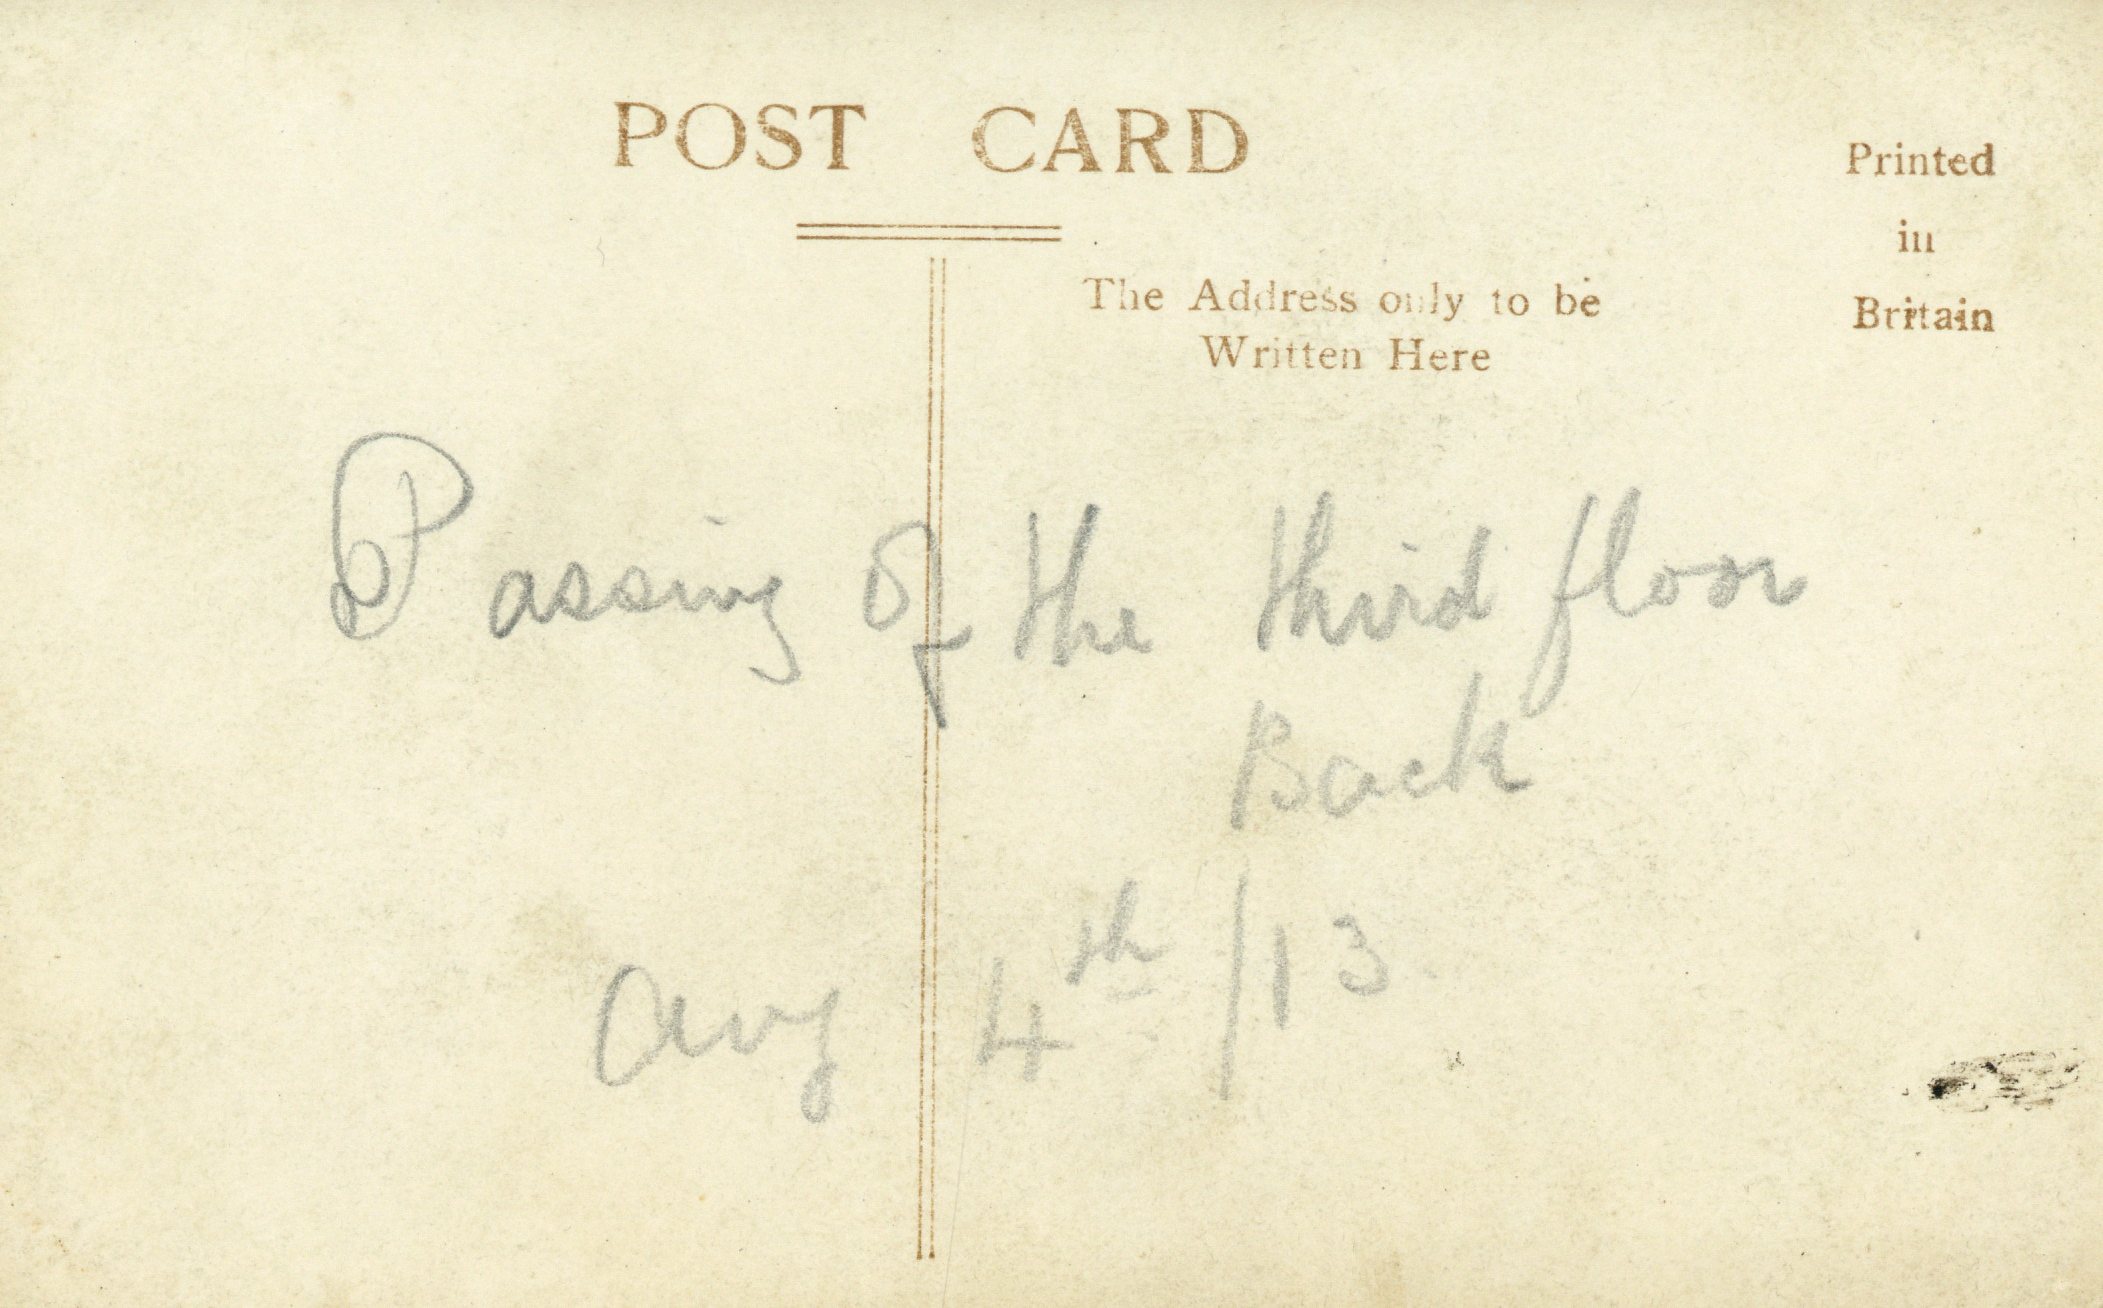 POST CARD
Printed
in
Britain
The Address only to be
Written Here
Passing of the third floor
Back
Aug 4th/13.